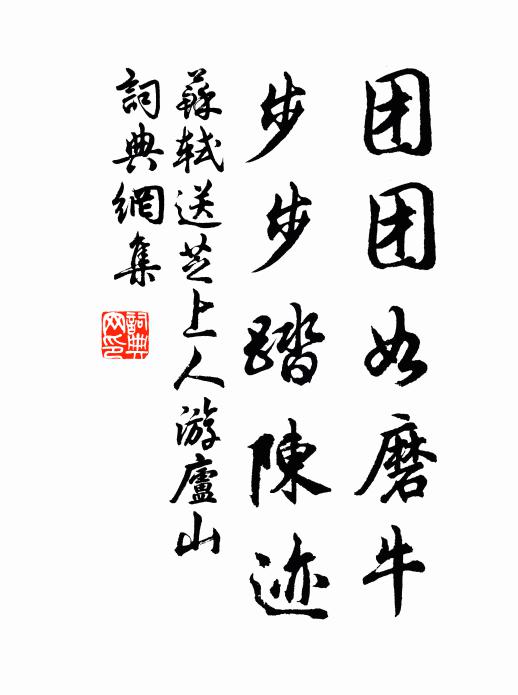 团团如磨牛
步步踏陳迹
蘇軾送芝上人游廬山
詞典網集
詞典网印